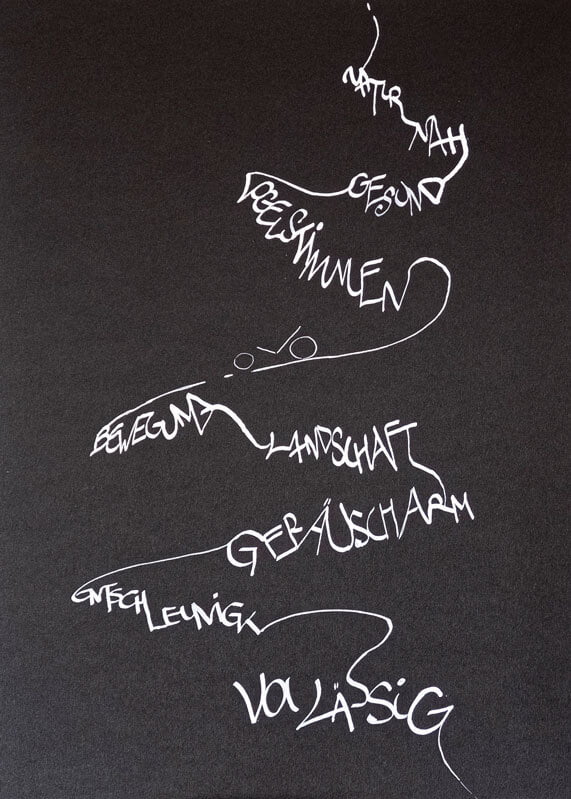 NATUR NAH
GESUND
VOGELSTIMMEN
BEWEGUNG
LANDSCHAFT
GERÄUSCHARM
ENTSCHLEUNIGT
VOI LÄSSIG